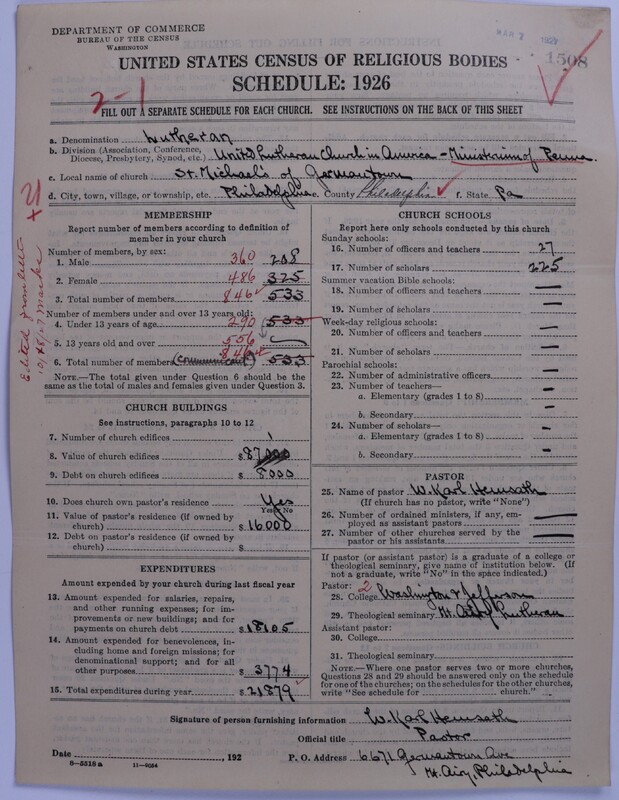 DEPARTMENT OF COMMERCE
BUREAU OF THE CENSUS
WASHINGTON
MAR 2
1508
UNITED STATES CENSUS OF RELIGIOUS BODIES
SCHEDULE: 1926
2-1
FILL OUT A SEPARATE SCHEDULE FOR EACH CHURCH. SEE INSTRUCTIONS ON THE BACK OF THIS SHEET
a. Denomination Lutheran
b. Division (Association, Conference, Diocese, Presbytery, Synod, etc.) United Lutheran Church in America - Ministerium of Penna.
c. Local name of church St. Michael's of Germantown
d. City, town, village, or township, etc. Philadelphia e. County Philadelphia f. State Pa
MEMBERSHIP
Report number of members according to definition of
member in your church
Number of members, by sex:
1. Male 360 208
2. Female 486 325
3. Total number of members 846 533
Number of members under and over 13 years old:
4. Under 13 years of age 290 533
5. 13 years old and over 556
6. Total number of members (Communicant) 846 533
NOTE.—The total given under Question 6 should be
same as the total of males and females given under Question 3.
CHURCH BUILDINGS
See instructions, paragraphs 10 to 12
7. Number of church edifices 1
8. Value of church edifices $87000
9. Debt on church edifices $8000
10. Does church own pastor's residence Yes
Yes or No
11. Value of pastor's residence (if owned by
church) $16000
12. Debt on pastor's residence (if owned by
church) $
EXPENDITURES
Amount expended by your church during last fiscal year
13. Amount expended for salaries, repairs,
and other running expenses; for im-
provements or new buildings; and for
payments on church debt $18105
14. Amount expended for benevolences, in-
cluding home and foreign missions; for
denominational support; and for all
other purposes $3774
15. Total expenditures during year $21879
CHURCH SCHOOLS
Report here only schools conducted by this church
Sunday schools:
16. Number of officers and teachers 27
17. Number of scholars 225
Summer vacation Bible schools:
18. Number of officers and teachers —
19. Number of scholars —
Week-day religious schools:
20. Number of officers and teachers —
21. Number of scholars —
Parochial schools:
22. Number of administrative officers —
23. Number of teachers—
a. Elementary (grades 1 to 8) -
b. Secondary -
24. Number of scholars—
a. Elementary (grades 1 to 8) -
b. Secondary -
PASTOR
25. Name of pastor W. Karl Hemsath
(If church has no pastor, write "None")
26. Number of ordained ministers, if any, em-
ployed as assistant pastors —
27. Number of other churches served by the
pastor or his assistants —
If pastor (or assistant pastor) is a graduate of a college or
theological seminary, give name of institution below. (If
not a graduate, write "No" in the space indicated.)
Pastor: 2
28. College Washington & Jefferson
29. Theological seminary Mt. Airy Lutheran
Assistant pastor:
30. College
31. Theological seminary
NOTE.—Where one pastor serves two or more churches,
Questions 28 and 29 should be answered only on the schedule
for one of the churches; on the schedules for the other churches,
write "See schedule for church."
Signature of person furnishing information W. Karl Hemsath
Official title Pastor
Date , 192 P. O. Address 6671 Germantown Ave
8-5518 a 11-9054 Mt. Airy, Philadelphia